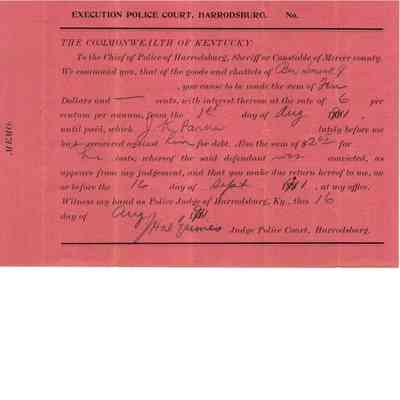 EXECUTION POLICE COURT, HARRODSBURG. No.
THE COMMONWEALTH OF KENTUCKY:
To the Chief of Police of Harrodsburg, Sheriff or Constable of Mercer county.
We command you, that of the goods and chattels of Ben
, you cause to be made the sum of
Dollars and — cents, with interest thereon at the rate of 6 per
centum per annum, from the 1st day of Aug
until paid, which J. lately before us
ha recovered against him for debt. Also the sum of $2 for
his costs; whereof the said defendant was convicted, as
appears from my judgement, and that you make due return hereof to me, on
or before the 16 day of Sept , at my office.
Witness my hand as Police Judge of Harrodsburg, Ky., this 16
day of Aug
Hal Grimes Judge Police Court, Harrodsburg.
MEMO.